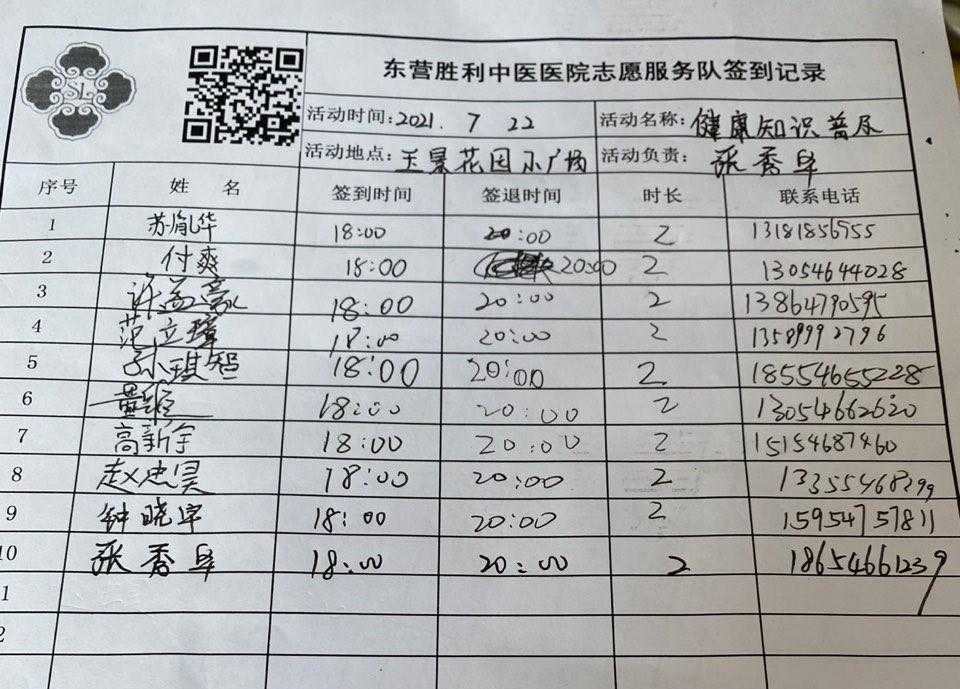 东营胜利中医医院志愿服务队签到记录
活动时间:2021. 7 22 活动名称:健康知识普及
活动地点:玉景花园小广场 活动负责:张秀阜
序号 姓 名 签到时间 签退时间 时长 联系电话
1 苏胤华 18:00 20:00 2 13181856955
2 付爽 18:00 20:00 2 13054644028
3 许孟豪 18:00 20:00 2 13864790595
4 范立璋 18:00 20:00 2 13589992796
5 孙琪智 18:00 20:00 2 18554655228
6 18:00 20:00 2 13054662620
7 高新宇 18:00 20:00 2 15154687460
8 赵忠昊 18:00 20:00 2 13355468299
9 钟晓宇 18:00 20:00 2 15954757811
10 张秀阜 18:00 20:00 2 18654661239
1
2